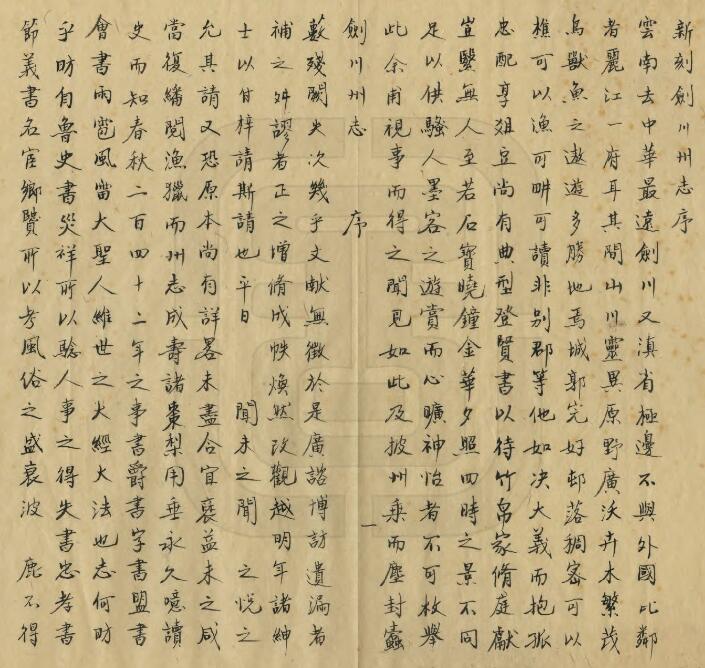 新刻劍川州志序
雲南去中華最遠劍川又滇省極邊不與外國比鄰
者麗江一府耳其間山川靈異原野廣沃卉木繁茂
鳥獸魚之遨遊多勝地焉城郭完好邨落稠密可以
樵可以漁可畊可讀非别郡等他如决大義而抱孤
忠配享俎豆尚有典型登賢書以待竹帛家脩庭獻
豈繄無人至若石寶曉鐘金華夕照四時之景不同
足以供騷人墨客之遊賞而心曠神怡者不可枚舉
此余甫視事而得之聞見如此及披州乘而塵封蠹
劍川州志 序 一
蔌殘闕失次幾乎文献無徴於是廣諮博訪遺漏者
補之舛謬者正之增脩成帙煥然改觀越明年諸紳
士以付梓請斯請也平日 聞未之聞 之悦之
允其請又恐原本尚有詳畧未盡合宜裒益未之咸
當復繙閱漁獵而州志成壽諸棗梨用垂永久噫讀
史而知春秋二百四十二年之事書爵書字書盟書
會書雨雹風雷大聖人維世之大經大法也志何昉
乎昉自魯史書災祥所以驗人事之得失書忠孝書
節義書名宦鄉賢所以考風俗之盛衰波 鹿不得